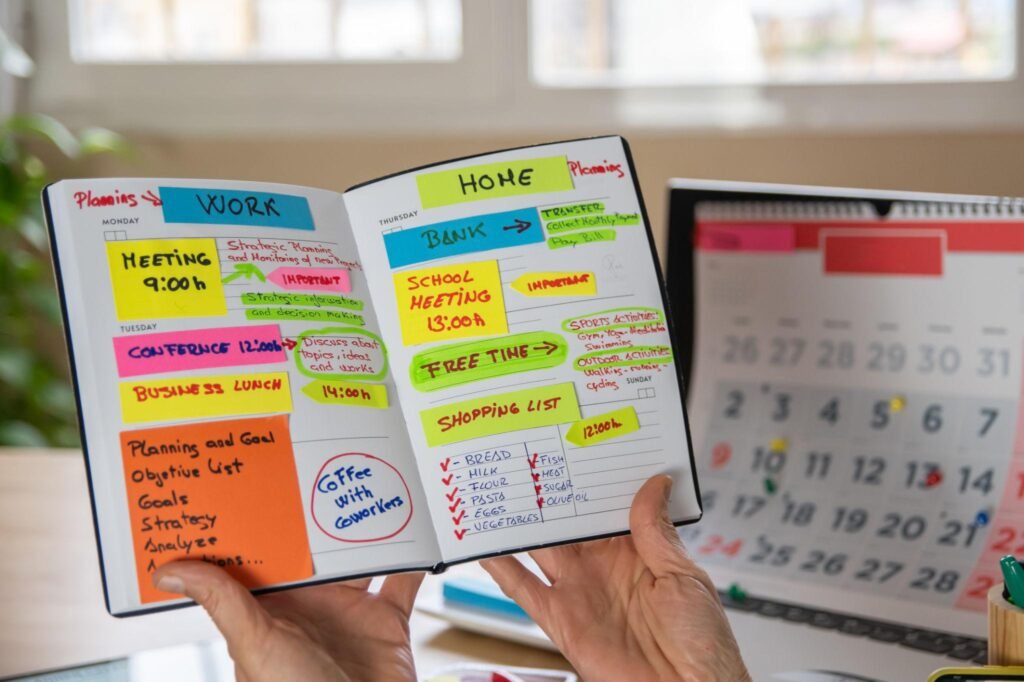 Planning
WORK
MONDAY
MEETING
9:00h
Strategic Planning
and Monitoring of new Project
IMPORTANT
Strategic information
and decision making
TUESDAY
CONFERNCE 12:00h
Discuss about
topics, ideas
and works
BUSINESS LUNCH
14:00h
Planning and Goal
Objetive List
Goals
Strategy
Analyze
COFFEE
WITH
COWORKERS
HOME
Planning
THURSDAY
BANK
TRANSFER
Collect Monthly Payment
Pay Bill
SCHOOL
MEETING
13:00h
IMPORTANT
FREE TIME
SPORTS ACTIVITIES:
Gym, Yoga, Meditation
Swimming
OUTDOOR ACTIVITIES
Walking - running -
cycling
SUNDAY
SHOPPING LIST
12:00h
- BREAD
- MILK
- FLOUR
- PASTA
- EGGS
- VEGETABLES
- FISH
- MEAT
- SUGAR
- OLIVE OIL
26 27 28 29 30 31
2 3 4 5 6 7
9 10 11 12 13 14
16 17 18 19 20 21 22
24 25 26 27 28